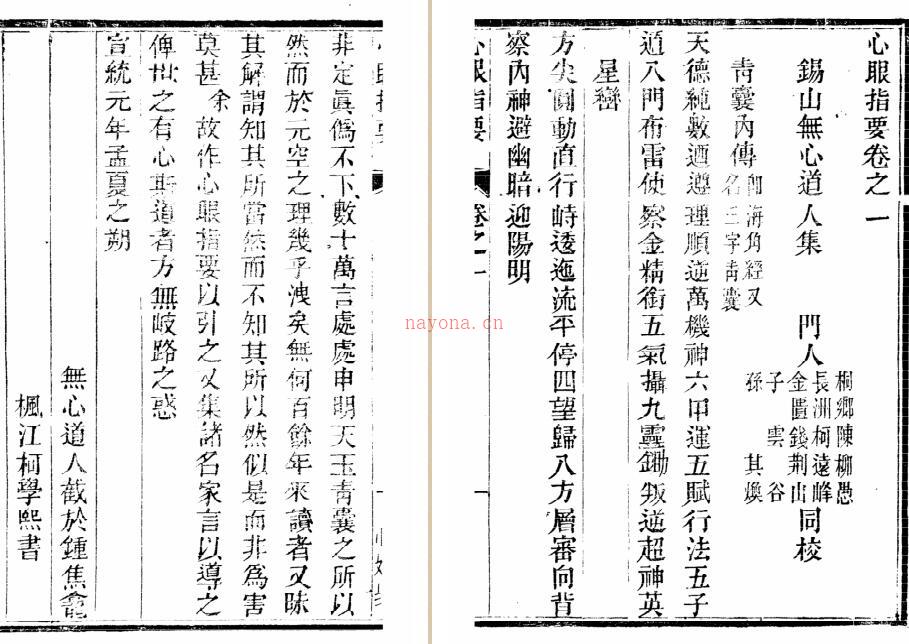 心眼指要卷之一
錫山無心道人集
門人
桐鄉陳柳愚
長洲柯遠峰
金匱錢荆山
子 雲谷
孫 其煥
同校
青囊內傳
即海角經又
名三字青囊
天德純數迺遵理順逆萬機神六甲運五賦行法五子
遁八門布雷使察金精銜五氣攝九靈鋤叛逆超神英
星巒
方尖圓動直行峙逶迤流平停四望歸八方層審向背
察內神避幽暗迎陽明
心眼指要
卷之一
一
nayona.cn
非定眞僞不下數十萬言處處申明天玉青囊之所以
然而於元空之理幾乎洩矣無何百餘年來讀者又昧
其解謂知其所當然而不知其所以然似是而非爲害
莫甚余故作心眼指要以引之又集諸名家言以導之
俾世之有心斯道者方無岐路之惑
宣統元年孟夏之朔
無心道人截於鍾焦龕
楓江柯學熙書